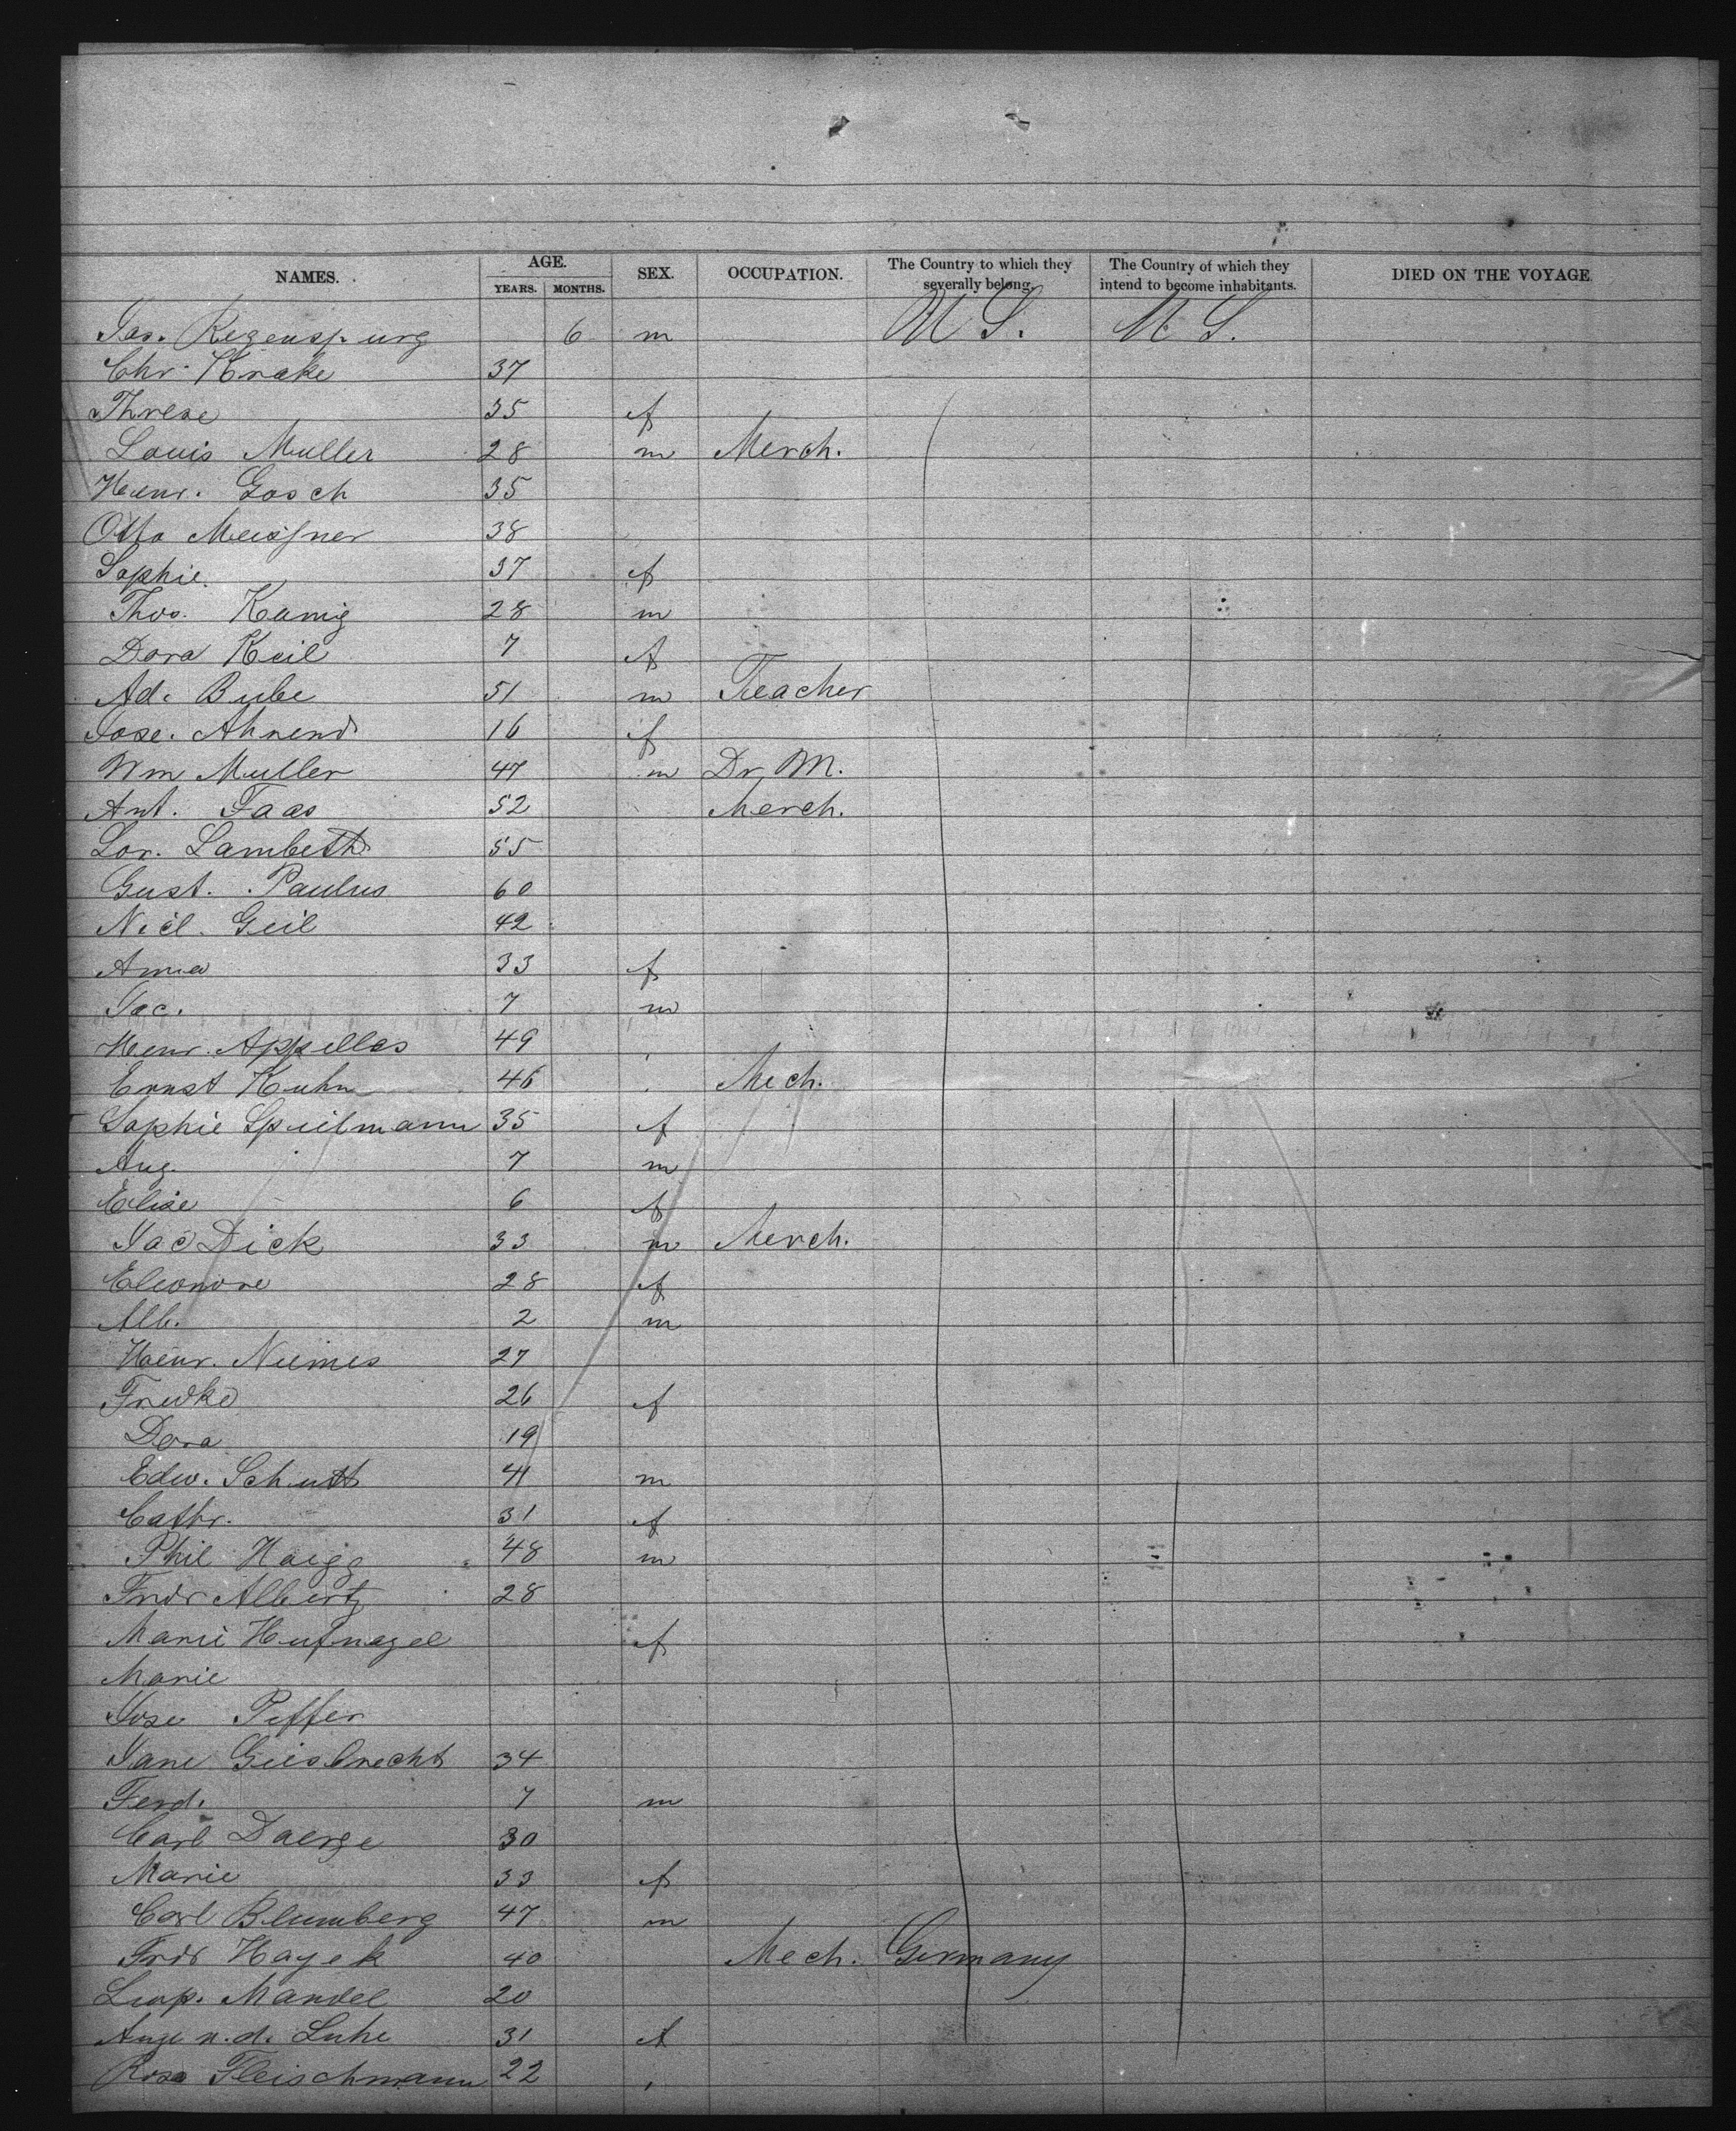 NAMES. AGE. YEARS. MONTHS. SEX. OCCUPATION. The Country to which they severally belong. The Country of which they intend to become inhabitants. DIED ON THE VOYAGE
Jas. Regenspurg 6 m U S. U. S.
Chr. Krake 37
Threse 35 f
Louis Muller 28 m Merch.
Henr. Gosch 35
Otto Meissner 38
Sophie. 37 f
Thos. Kamig 28 m
Dora Keil 7 f
Ad. Bube 51 m Teacher
Jose. Ahrend 16 f
Wm Muller 47 m Dr. M.
Ant. Faas 52 Merch.
Lor. Lambeth 55
Gust. Paulus 60
Nicl. Geil 42
Anna 33 f
Jac. 7 m
Henr. Appelles 49
Ernst Kuhn 46 Mech.
Sophie Spielmann 35 f
Aug. 7 m
Elise 6 f
Jac Dick 33 m Merch.
Eleonore 28 f
Alb. 2 m
Henr. Niemes 27
Fredke 26 f
Dora 19
Edw. Schutt 41 m
Cathr. 31 f
Phil Haigg 48 m
Fredr Albertz 28
Marie Hufnagel f
Marie
Jose Peffer
Jane Giesbrecht 34
Ferd. 7 m
Carl Daerge 30
Marie 33 f
Carl Blumberg 47 m
Fredr Hayek 40 Mech. Germany
Leop. Mandel 20
Auge n. d. Luhe 31 f
Rosa Fleischmann 22